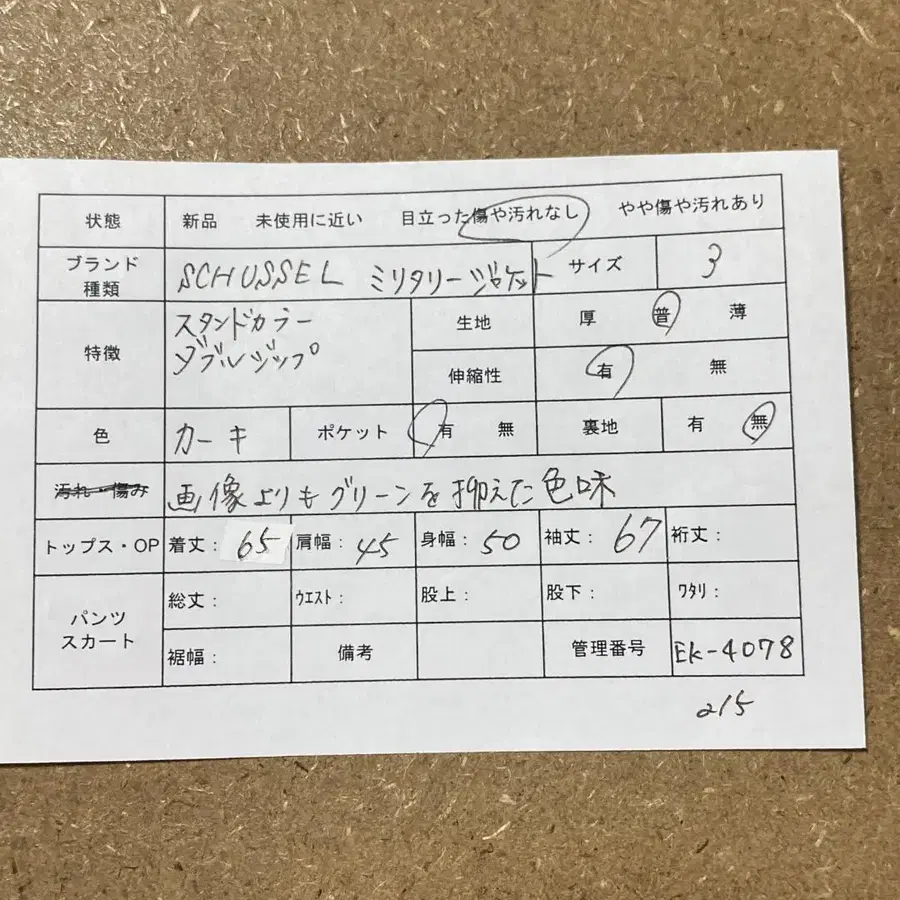 状態 新品 未使用に近い 目立った傷や汚れなし やや傷や汚れあり
ブランド 種類 SCHUSSEL ミリタリージャケット サイズ 3
特徴 スタンドカラー
ダブルジップ
生地 厚 普 薄
伸縮性 有 無
色 カーキ ポケット 有 無 裏地 有 無
汚れ・傷み 画像よりもグリーンを抑えた色味
トップス・OP 着丈: 65 肩幅: 45 身幅: 50 袖丈: 67 裄丈:
パンツ スカート 総丈: ウエスト: 股上: 股下: ワタリ:
裾幅: 備考 管理番号 EK-4078
215